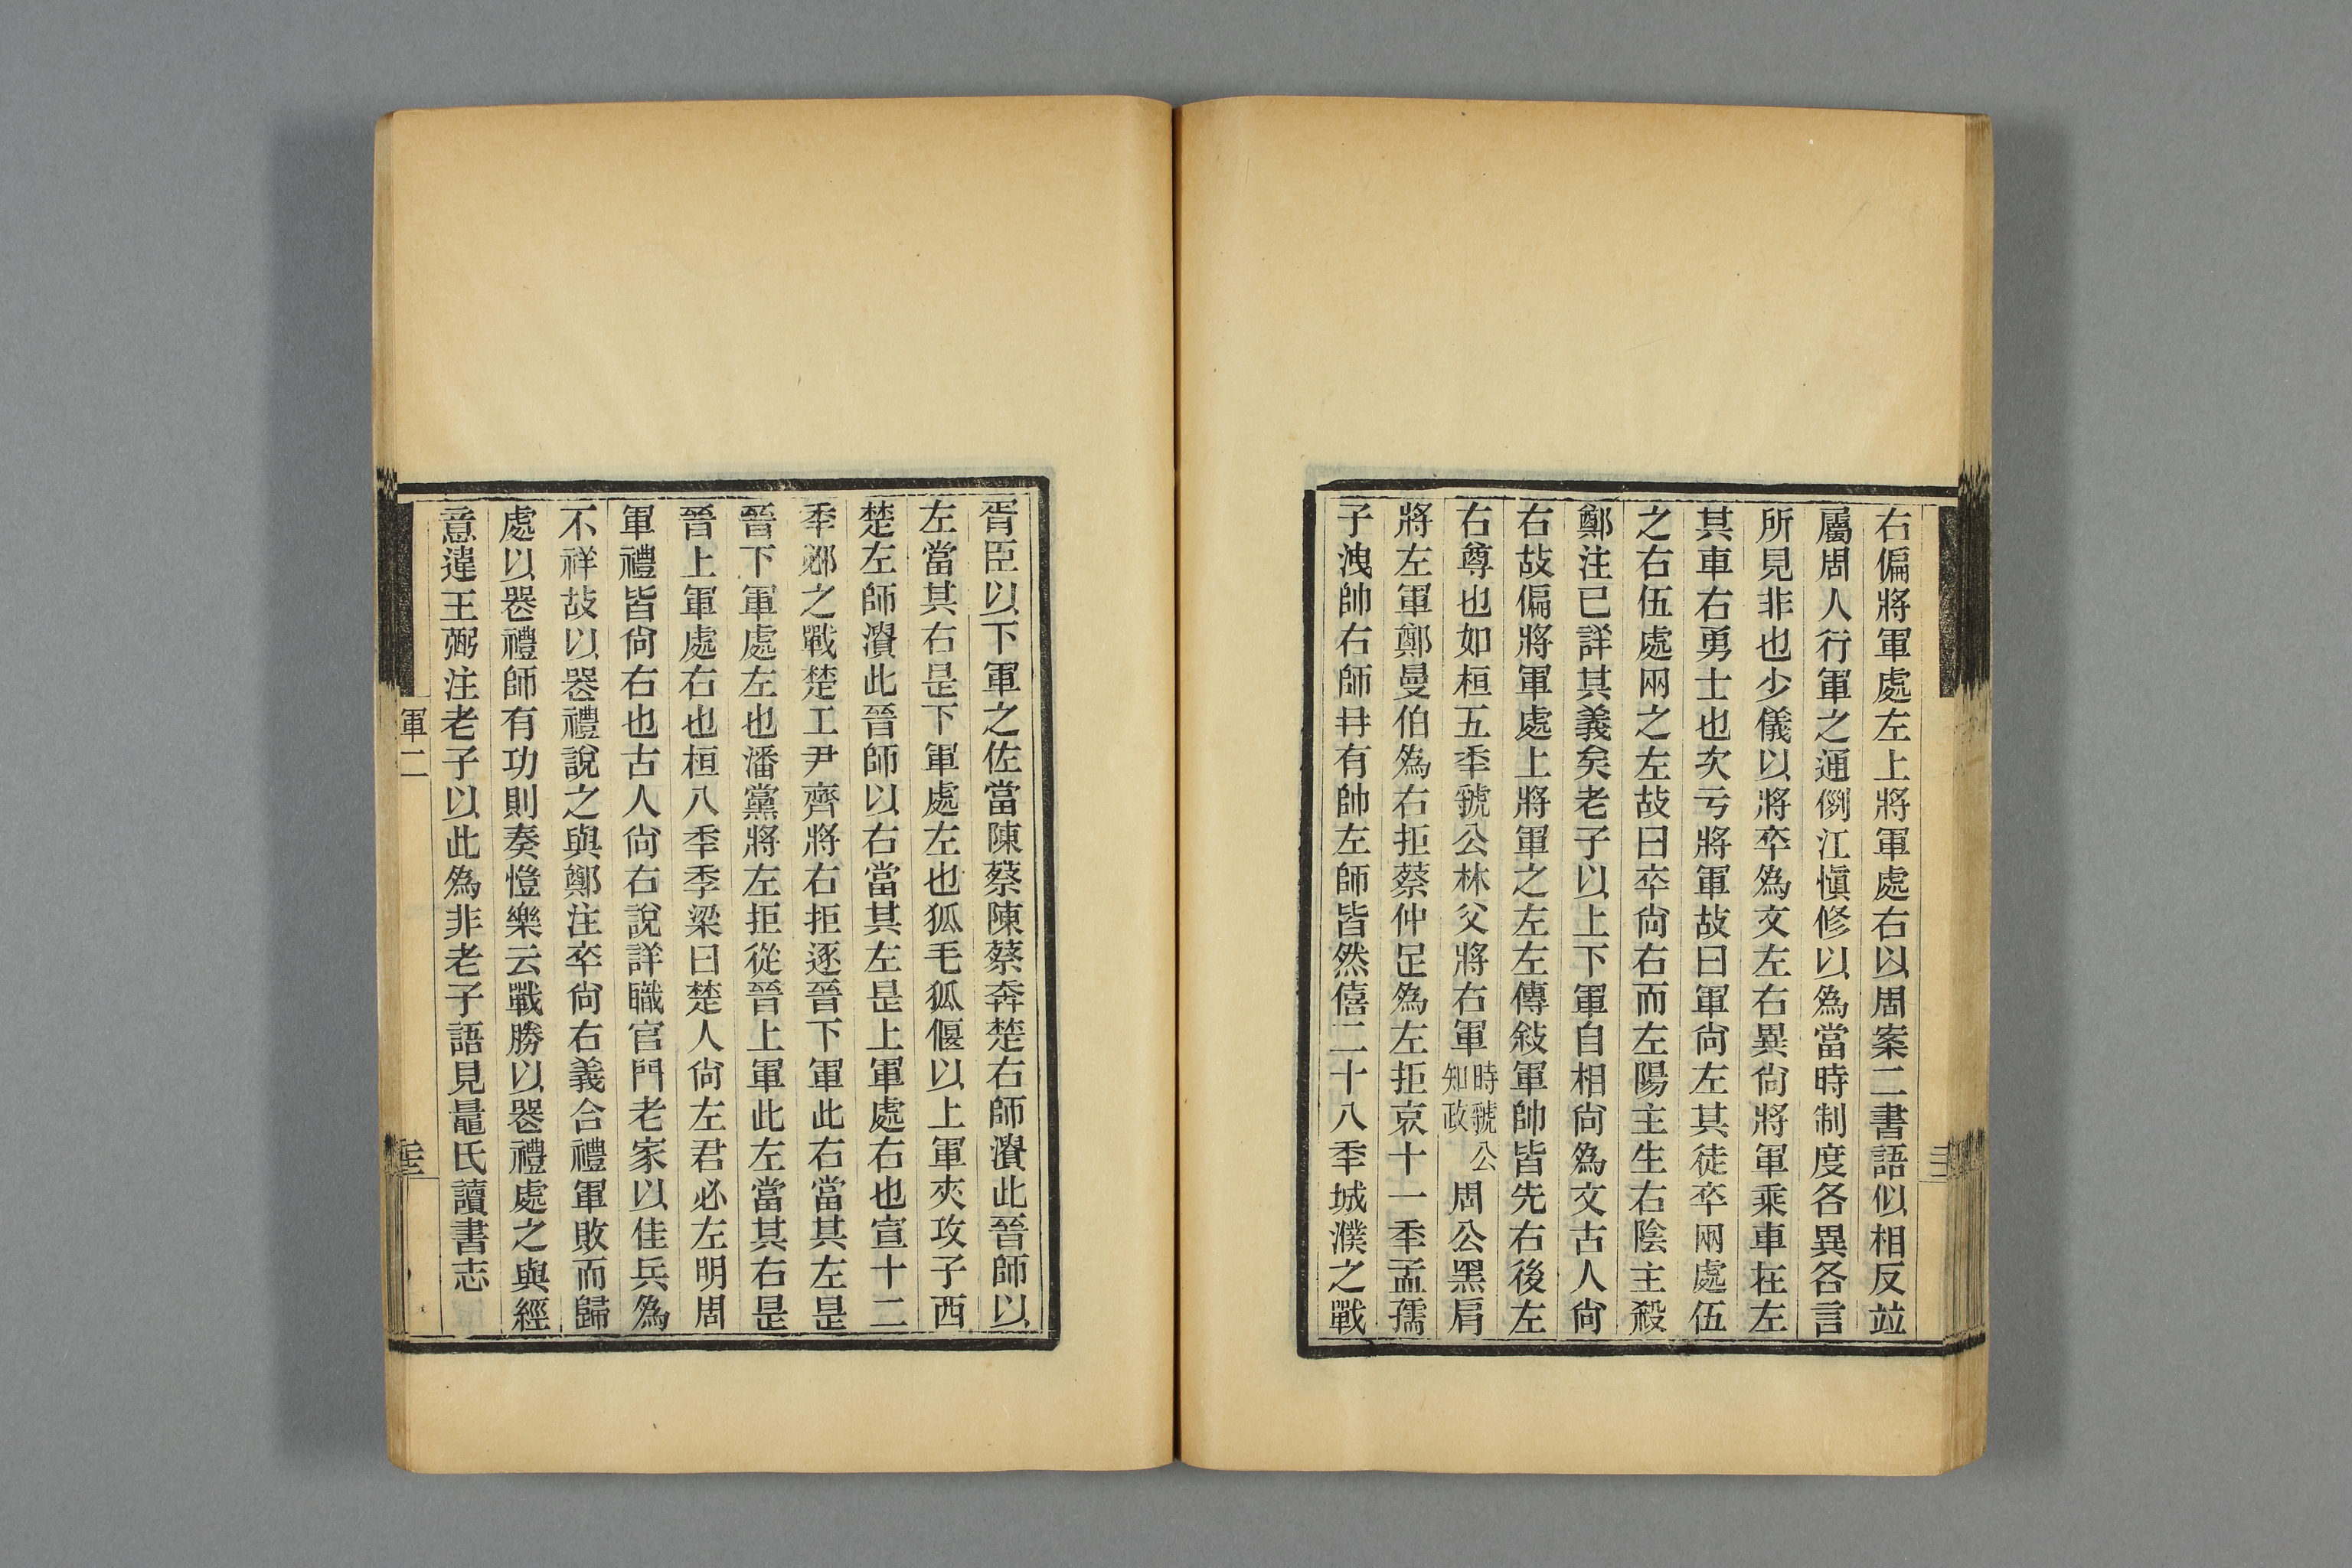 右偏將軍處左上將軍處右以周案二書語似相反竝
屬周人行軍之通例江愼修以爲當時制度各異各言
所見非也少儀以將卒爲文左右異尙將軍乘車在左
其車右勇士也次亏將軍故曰軍尙左其徒卒兩處伍
之右伍處兩之左故曰卒尙右而左陽主生右陰主殺
鄭注已詳其義矣老子以上下軍自相尙爲文古人尙
右故偏將軍處上將軍之左左傳敍軍帥皆先右後左
右尊也如桓五秊虢公林父將右軍時虢公知政周公黑肩
將左軍鄭曼伯爲右拒蔡仲足爲左拒哀十一秊孟孺
子洩帥右師冄有帥左師皆然僖二十八秊城濮之戰
胥臣以下軍之佐當陳蔡陳蔡奔楚右師潰此晉師以
左當其右是下軍處左也狐毛狐偃以上軍夾攻子西
楚左師潰此晉師以右當其左是上軍處右也宣十二
秊邲之戰楚工尹齊將右拒逐晉下軍此右當其左是
晉下軍處左也潘黨將左拒從晉上軍此左當其右是
晉上軍處右也桓八秊季梁曰楚人尙左君必左明周
軍禮皆尙右也古人尙右說詳職官門老家以佳兵爲
不祥故以喪禮說之與鄭注卒尙右義合禮軍敗而歸
處以喪禮師有功則奏愷樂云戰勝以喪禮處之與經
意違王弼注老子以此爲非老子語見鼂氏讀書志
軍二